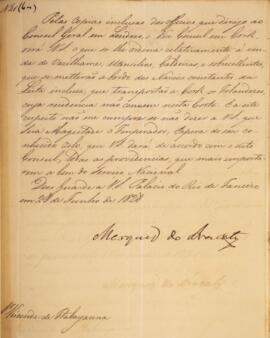 Pelas Copias inclusas dos officios que dirijo ao
Consul Geral em Londres, e Vice Consul em Cork
verá V. o que se lhes ordena relativamente á ven-
da de Vasilhame, utensilios, Caldeiras, e sobrecellentes,
que se metterão a bordo dos Navios constantes da
Lista inclusa que transportão a Cork os Irlandeses,
cuja residencia não convem nesta Corte. E a este
respeito não me cumpre se não dizer a V. que
Sua Magestade o Imperador, Espera do seu co-
nhecido zelo, que V. dará de accordo com o dito
Consul, todas as providencias, que mais importa-
rem a bem do Serviço Nacional.
Deos Guarde a V. Palacio do Rio de Janeiro
em 28 de Junho de 1828
Marquez do Aracaty
Visconde de Itabayanna